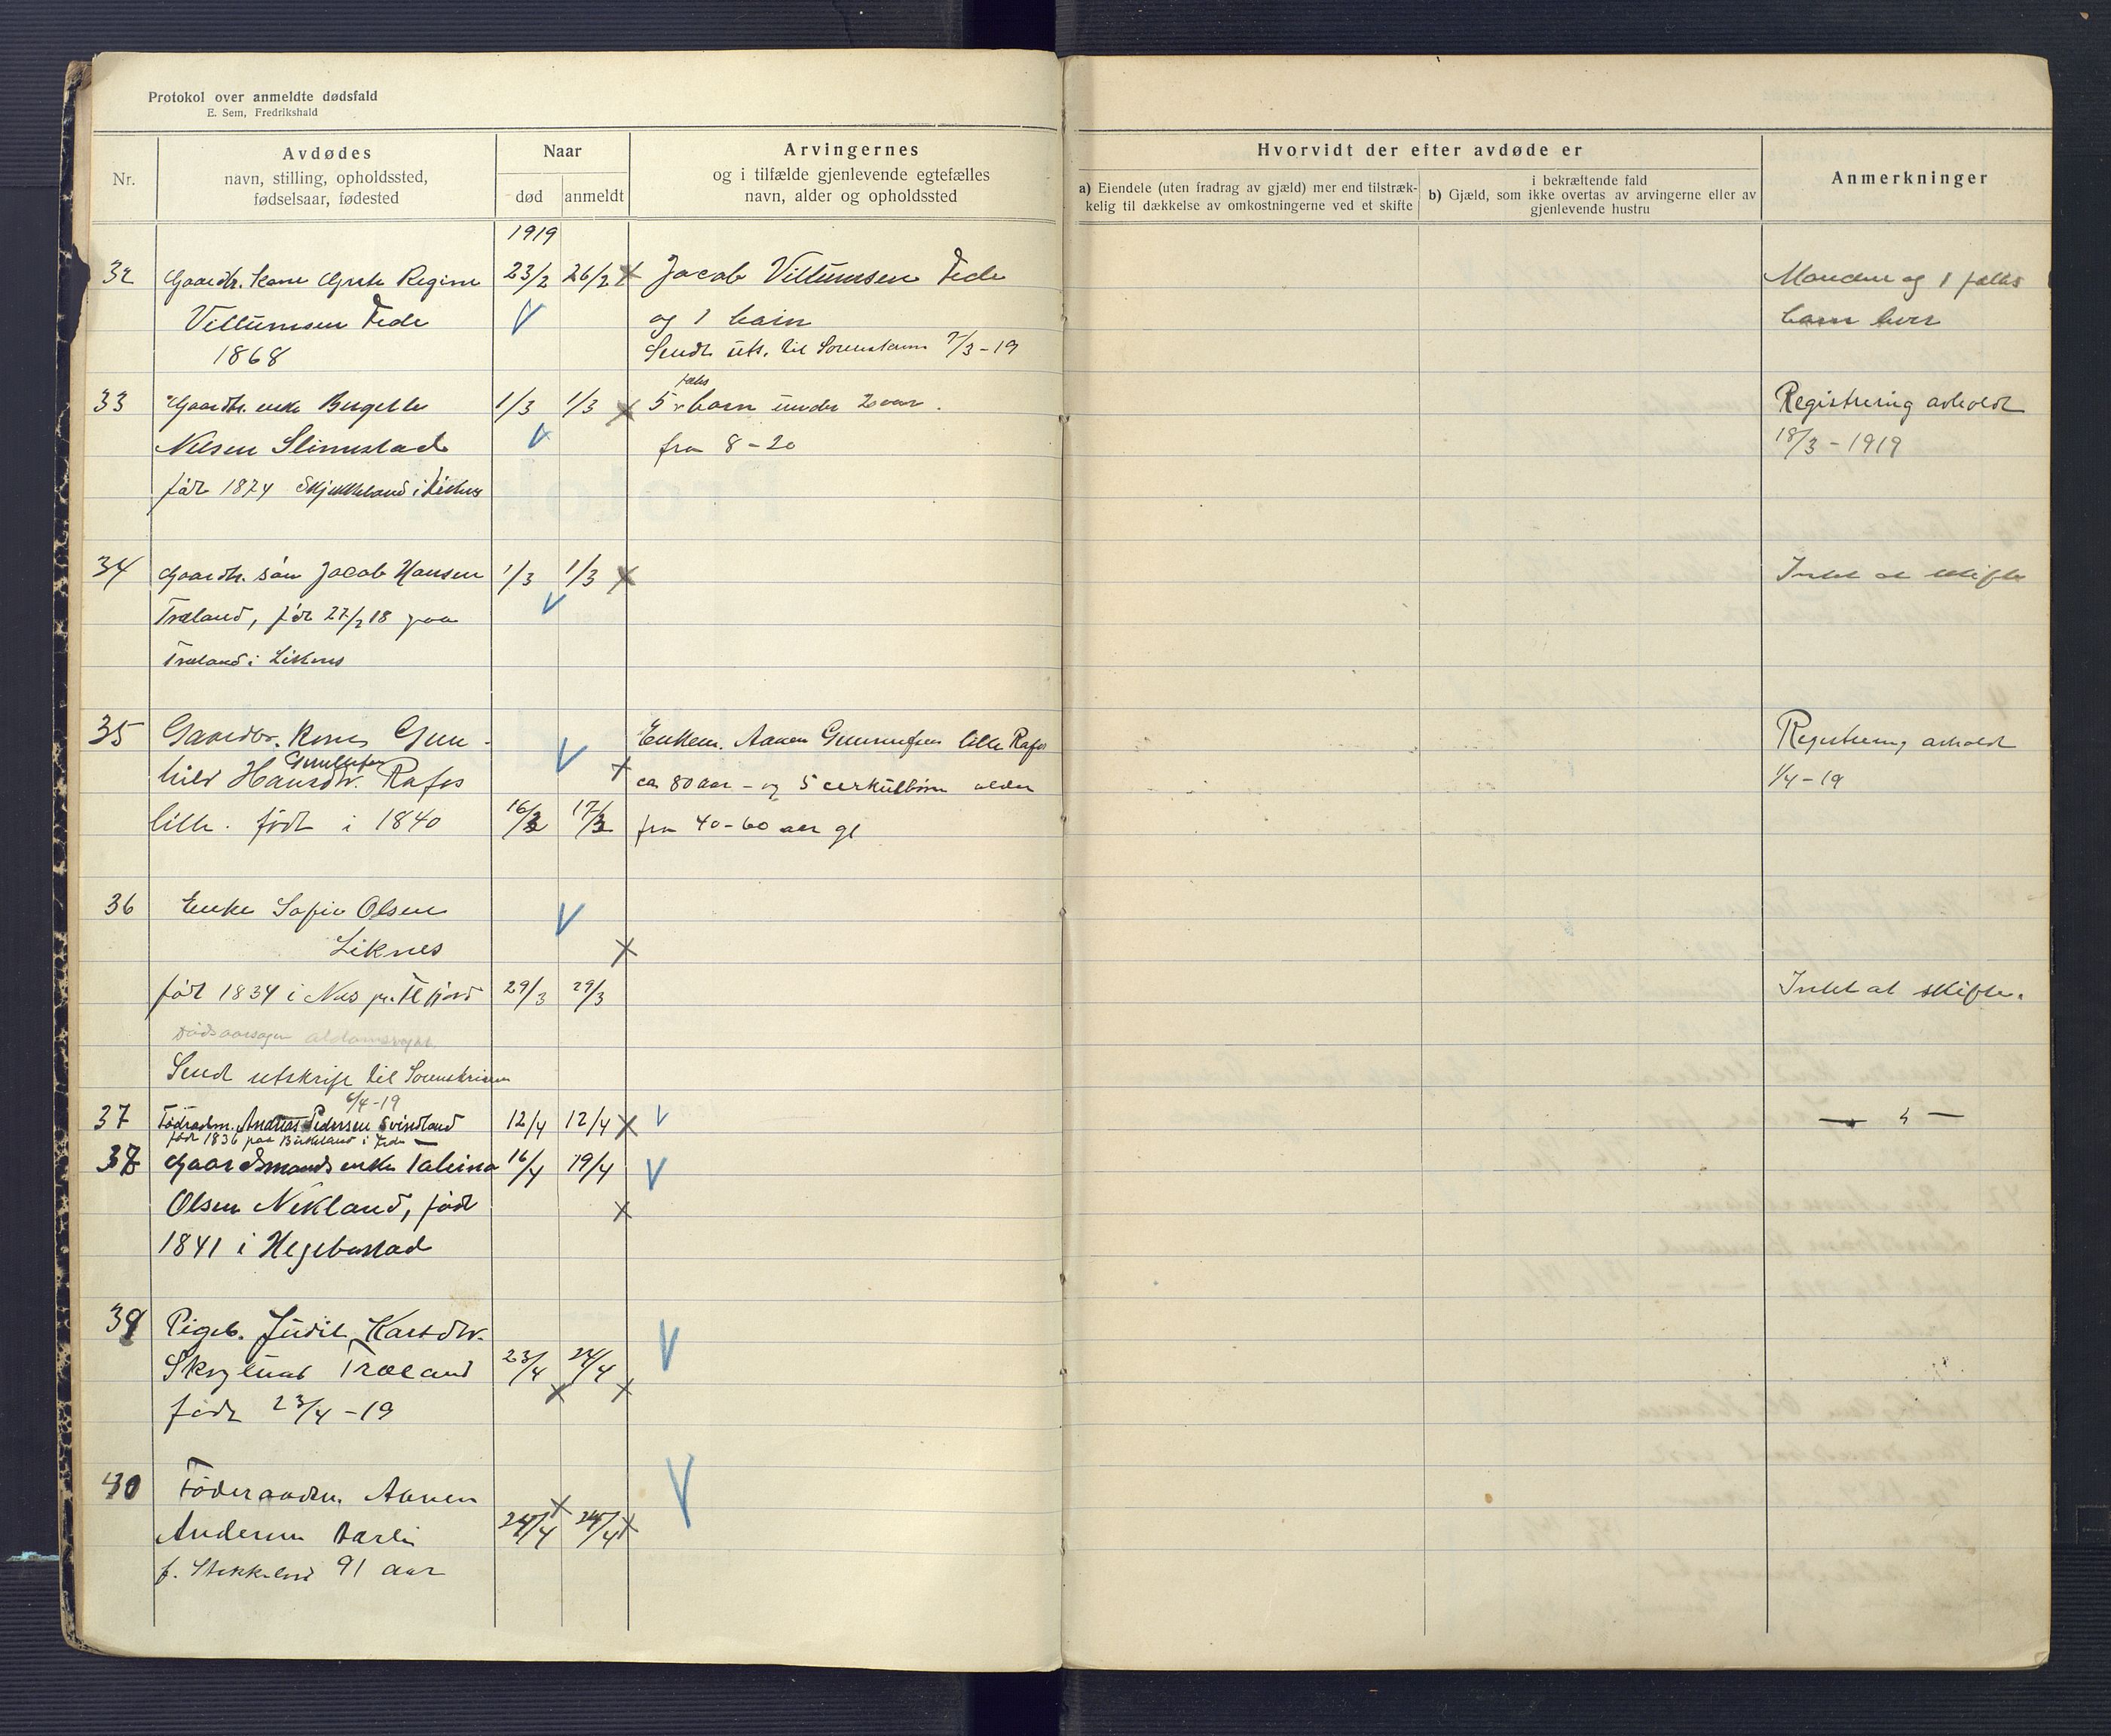 Protokol over anmeldte dødsfald
E. Sem, Fredrikshald
Nr.
Avdødes
navn, stilling, opholdssted,
fødselsaar, fødested
Naar
død
anmeldt
Arvingernes
og i tilfælde gjenlevende egtefælles
navn, alder og opholdssted
Hvorvidt der efter avdøde er
a) Eiendele (uten fradrag av gjæld) mer end tilstræk-
kelig til dækkelse av omkostningerne ved et skifte
i bekræftende fald
b) Gjæld, som ikke overtas av arvingerne eller av
gjenlevende hustru
Anmerkninger
1919
32 Gaardbr. kone Grete Regine 23/2 26/2 x Jacob Villumsen Fede Manden og 1 fælles
Villumsen Fede og 1 barn barn lever
1868 Sendt uts. til Sorenskriv 7/3-19
33 Gaardbr. enke Bergette 1/3 1/3 x 5 fælles barn under 20 aar. Registrering avholdt
Nilsen Slimestad fra 8-20 18/3-1919
født 1874 i Liknes
34 Gaardbr. søn Jacob Hansen 1/3 1/3 x Intet at skifte
Træland, født 27/2 18 paa
Træland i Liknes
35 Gaardbr. kone Gun- Enkem. Aanen Gunnufsen lille Rafos Registrering avholdt
hild Hansdtr. Gunnufsen Rafos x ca 80 aar - og 5 alder 1/4-19
lille. født i 1840 16/3 17/3 fra 40-60 aar gl
36 Enke Sofie Olsen
Liknes x
født 1834 i Nes pr. Flekkefjord 29/3 29/3 Intet at skifte.
Dødsaarsagen alderdomssvakhet
Send utskrift til Sorenskriveren
6/4-19
37 Føderaadsm. Andreas Pedersen Svindland 12/4 12/4 x — " —
født 1836 paa Birkeland i Fede
38 Gaardsmands enke Taleina 16/4 19/4
Olsen Nekland, født x
1841 i Hegebostad
39 Pigeb. Judit Karsdtr.
Træland 23/4 24/4
født 23/4-19 x x
40 Føderaadsm. Aanen x
Andersen 24/4 24/4 x
f. Stakkeland 91 aar